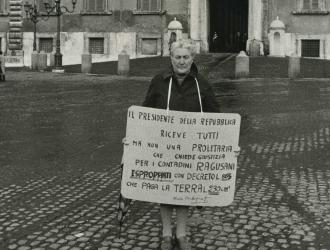 IL PRESIDENTE DELLA REPUBBLICA
RICEVE TUTTI
MA NON UNA PROLITARIA
CHE CHIEDE GIUSTIZIA
PER I CONTADINI RAGUSANI
ESPROPRIATI CON DECRETO L.
CHE PAGA LA TERRA L 230 M²
Maria